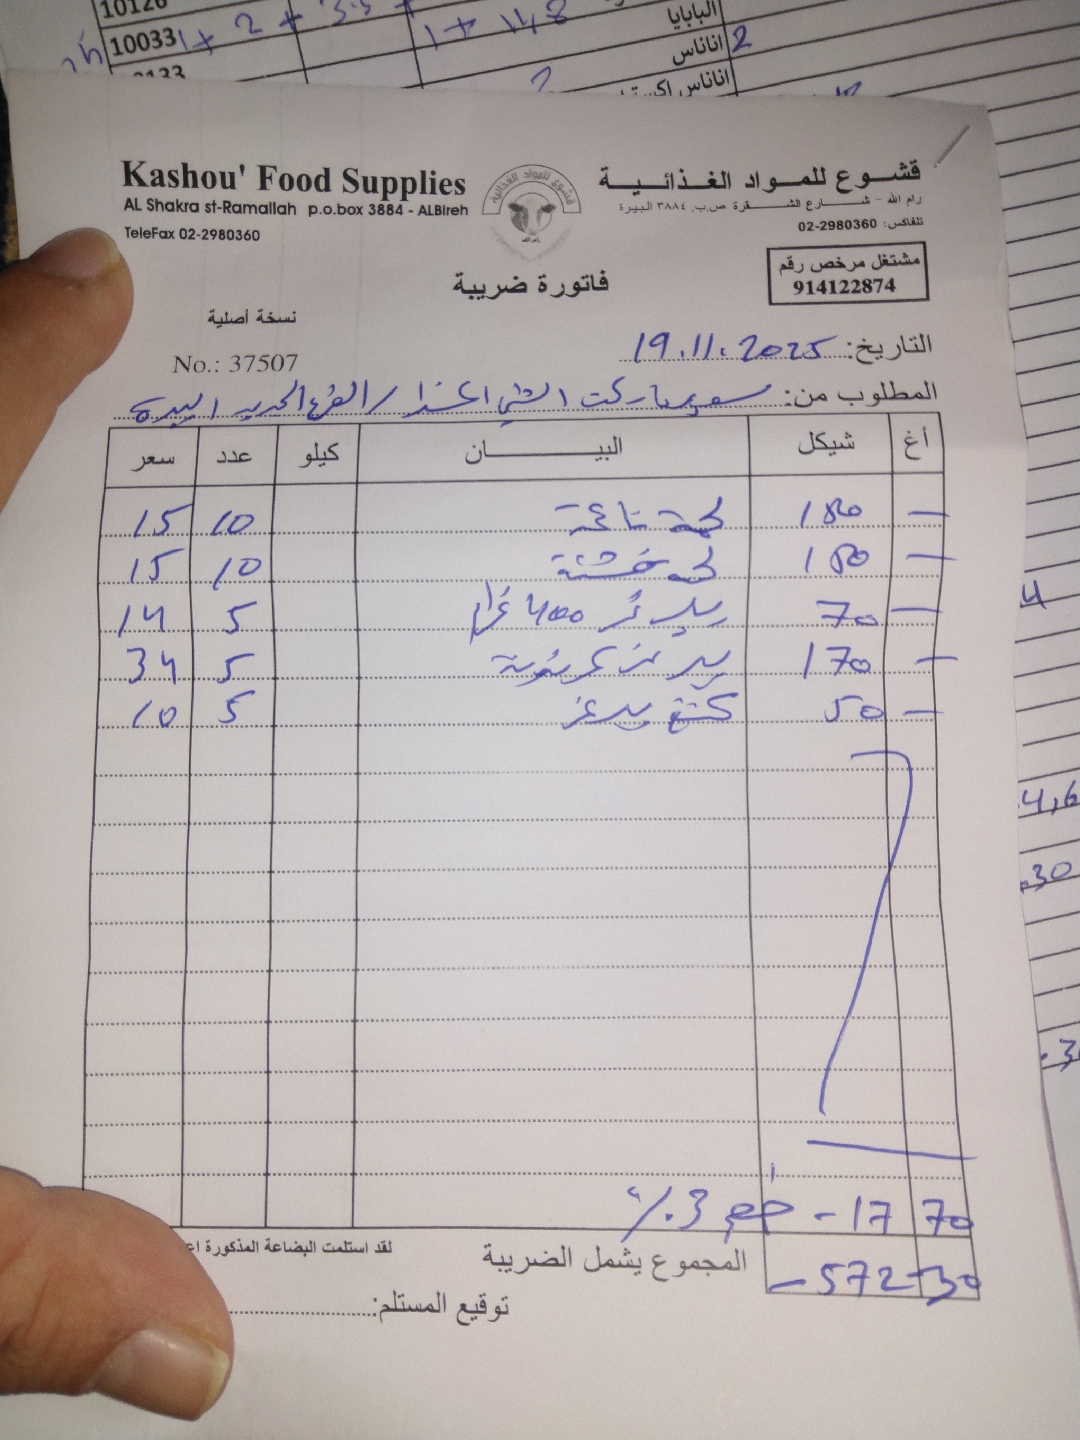 10126
10033 1 + 2 + 3.5 +
1 + 14,8
البابايا
اناناس 2
اناناس
Kashou' Food Supplies
AL Shakra st-Ramallah p.o.box 3884 - ALBireh
TeleFax 02-2980360
قشوع للمواد الغذائية
رام الله - شارع الشقرة ص.ب. ٣٨٨٤ البيرة
تلفاكس: 02-2980360
مشتغل مرخص رقم
914122874
فاتورة ضريبة
نسخة أصلية
No.: 37507
التاريخ: 19.11.2025
المطلوب من: سوبرماركت الشني اكسترا / الفرع الجديد البيرة
أغ شيكل البيــان كيلو عدد سعر
— 150 ناعمة 10 15
— 150 خشنة 10 15
— 70 400 غرام 5 14
— 170 5 34
— 50 5 10
خصم 3% - 17 70
المجموع يشمل الضريبة - 572 - 30
لقد استلمت البضاعة المذكورة
توقيع المستلم:
4
4,6
.30